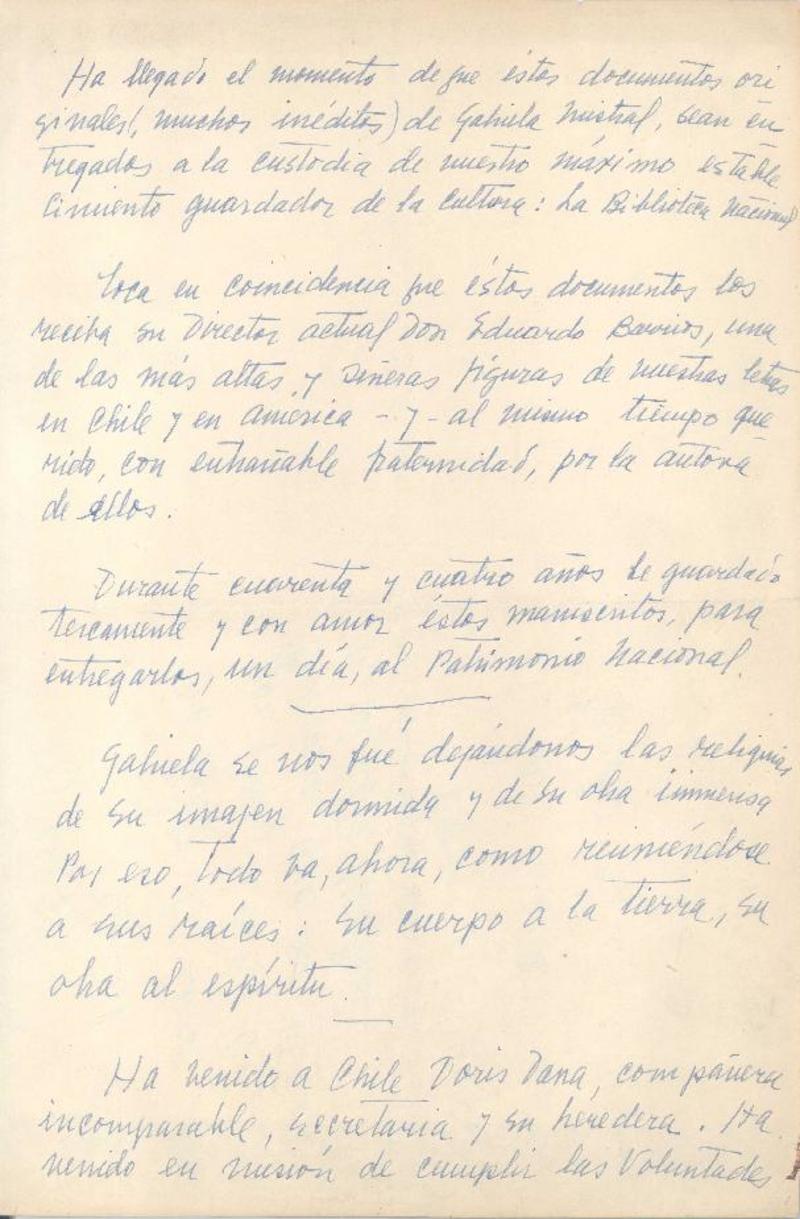 Ha llegado el momento de que éstos documentos ori
ginales (, muchos inéditos) de Gabriela Mistral, sean en
tregados a la custodia de nuestro máximo estable
cimiento guardador de la cultura: La Biblioteca Nacional
Toca en coincidencia que éstos documentos los
reciba su Director actual Don Eduardo Barrios, una
de las más altas y señeras figuras de nuestras letras
en Chile y en América - y - al mismo tiempo que
rido, con entrañable fraternidad, por la autora
de ellos.
Durante cuarenta y cuatro años he guardado
tercamente y con amor éstos manuscritos, para
entregarlos, un día, al Patrimonio Nacional.
Gabriela se nos fué dejándonos las reliquias
de su imagen dormida y de su obra inmensa
Por eso, todo va, ahora, como reuniéndose
a sus raíces: su cuerpo a la tierra, su
obra al espíritu.
Ha venido a Chile Doris Dana, compañera
incomparable, secretaria y su heredera. Ha
venido en misión de cumplir las Voluntades